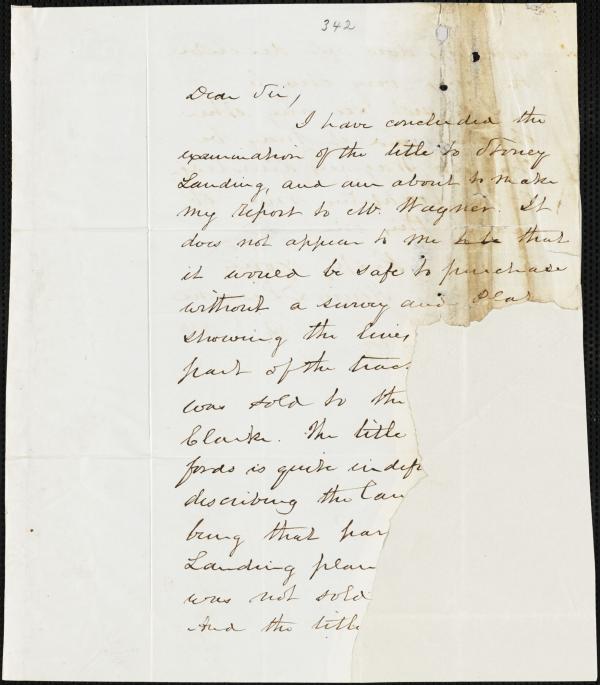 342
Dear Sir,
I have concluded the
examination of the title to Stoney
Landing, and am about to make
my report to Mr. Wagner. It
does not appear to me that
it would be safe to purchase
without a survey and Plat
showing the lines
part of the trac
was sold to the
Clarke. The title
fords is quite indef
describing the Lan
being that par
Landing plan
was not sold
And the title